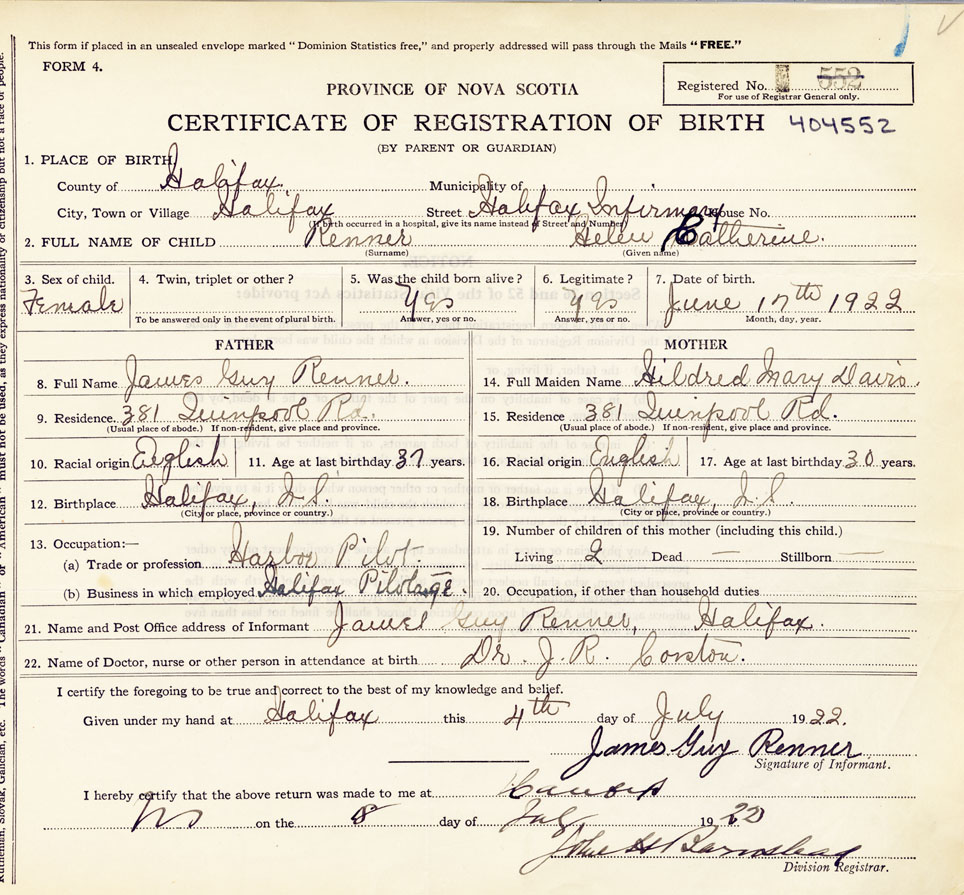 This form if placed in an unsealed envelope marked "Dominion Statistics free," and properly addressed will pass through the Mails "FREE."
FORM 4.
Registered No. 552
For use of Registrar General only.
PROVINCE OF NOVA SCOTIA
CERTIFICATE OF REGISTRATION OF BIRTH 404552
(BY PARENT OR GUARDIAN)
1. PLACE OF BIRTH
County of Halifax Municipality of
City, Town or Village Halifax Street Halifax Infirmary House No.
(If birth occurred in a hospital, give its name instead of Street and Number)
2. FULL NAME OF CHILD Renner Helen Catherine.
(Surname) (Given name)
3. Sex of child. 4. Twin, triplet or other? 5. Was the child born alive? 6. Legitimate? 7. Date of birth.
Female yes yes June 17th 1922
To be answered only in the event of plural birth. Answer, yes or no. Answer, yes or no. Month, day, year.
FATHER MOTHER
8. Full Name James Guy Renner. 14. Full Maiden Name Hildred Mary Davis.
9. Residence 381 Quinpool Rd. 15. Residence 381 Quinpool Rd.
(Usual place of abode.) If non-resident, give place and province. (Usual place of abode.) If non-resident, give place and province.
10. Racial origin English 11. Age at last birthday 37 years. 16. Racial origin English 17. Age at last birthday 30 years.
12. Birthplace Halifax, N.S. 18. Birthplace Halifax, N.S.
(City or place, province or country.) (City or place, province or country.)
19. Number of children of this mother (including this child.)
13. Occupation:—
Living 2 Dead — Stillborn —
(a) Trade or profession Harbor Pilot.
(b) Business in which employed Halifax Pilotage. 20. Occupation, if other than household duties
21. Name and Post Office address of Informant James Guy Renner, Halifax.
22. Name of Doctor, nurse or other person in attendance at birth Dr. J. R. Corston.
I certify the foregoing to be true and correct to the best of my knowledge and belief.
Given under my hand at Halifax this 4th day of July 1922.
James Guy Renner
Signature of Informant.
I hereby certify that the above return was made to me at
NS on the 8 day of July 1922
John H Barnstead
Division Registrar.